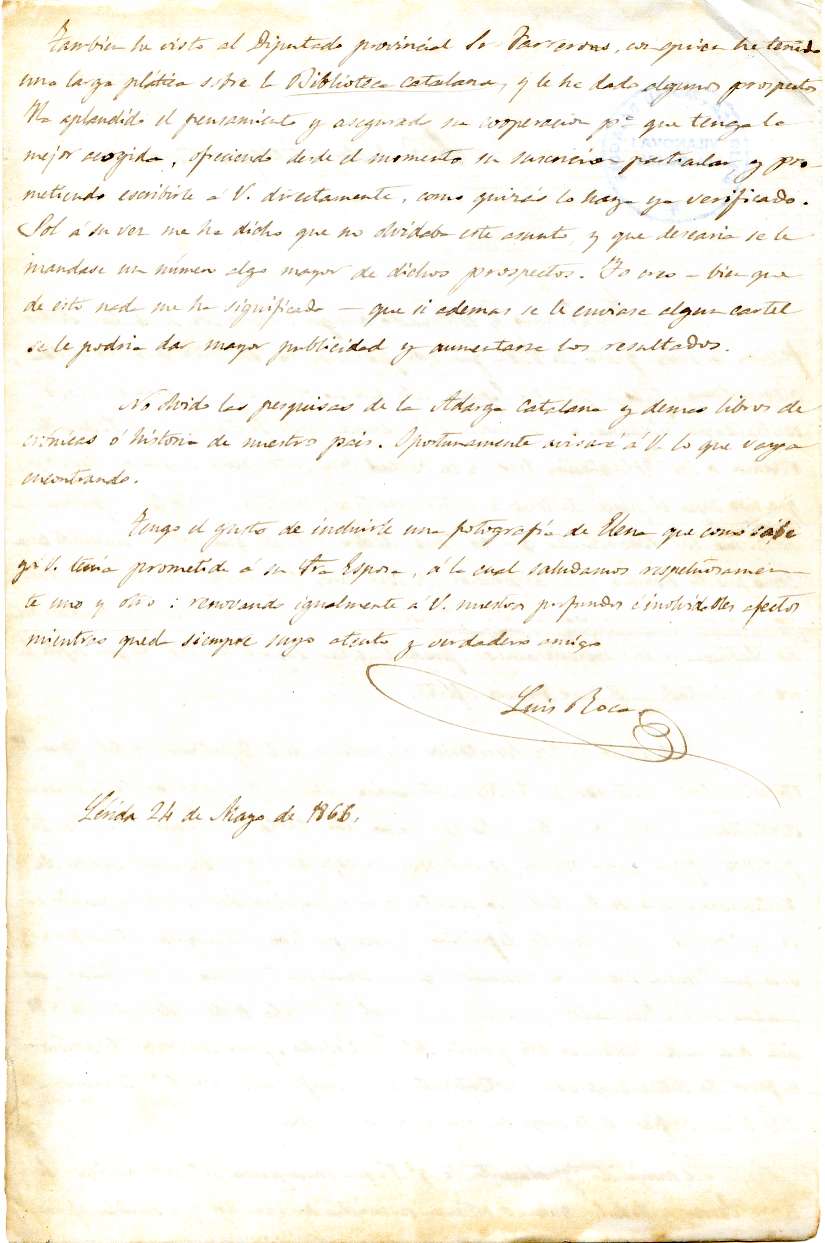 Tambien he visto al Diputado provincial Sr. con quien he tenido
una larga plática sobre la Biblioteca catalana, y le he dado algunos prospectos
Ha aplaudido el pensamiento y asegurado su cooperacion pª que tenga la
mejor acogida, ofreciendo desde el momento su suscricion particular y pro
metiendo escribirle á V. directamente, como quizás lo haya ya verificado.
Sol á su vez me ha dicho que no olvidaba este asunto, y que desearia se le
mandase un número algo mayor de dichos prospectos. Yo creo - bien que
de esto nada me ha significado — que si ademas se le enviase algun cartel
se le podria dar mayor publicidad y aumentarse los resultados.
No olvido las pesquisas de la Adarga Catalana y demas libros de
crónicas ó historia de nuestro pais. Oportunamente avisaré á V. lo que vaya
encontrando.
Tengo el gusto de incluirle una fotografía de Elena que como sabe
ya V. tenia prometida á su Sra Esposa, á la cual saludamos respetuosamen-
te uno y otro: renovando igualmente á V. nuestros profundos é inolvidables afectos
mientras queda siempre suyo atento y verdadero amigo
Luis Roca
Lérida 24 de Mayo de 1866.